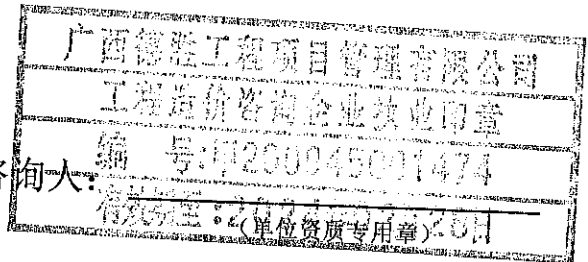 广西德胜工程项目管理有限公司
工程造价咨询企业执业印章
编 号:甲200045001474
咨询人:
有效期至:
(单位资质专用章)